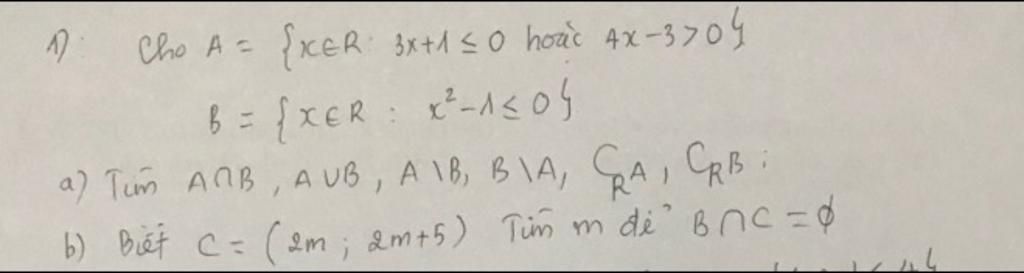 1): Cho A = {x∈R: 3x+1 ≤ 0 hoặc 4x-3>0}
B = {x∈R : x²-1≤0}
a) Tìm A∩B, A∪B, A\B, B\A, C_R A, C_R B;
b) Biết C = (2m; 2m+5) Tìm m để B∩C = ∅